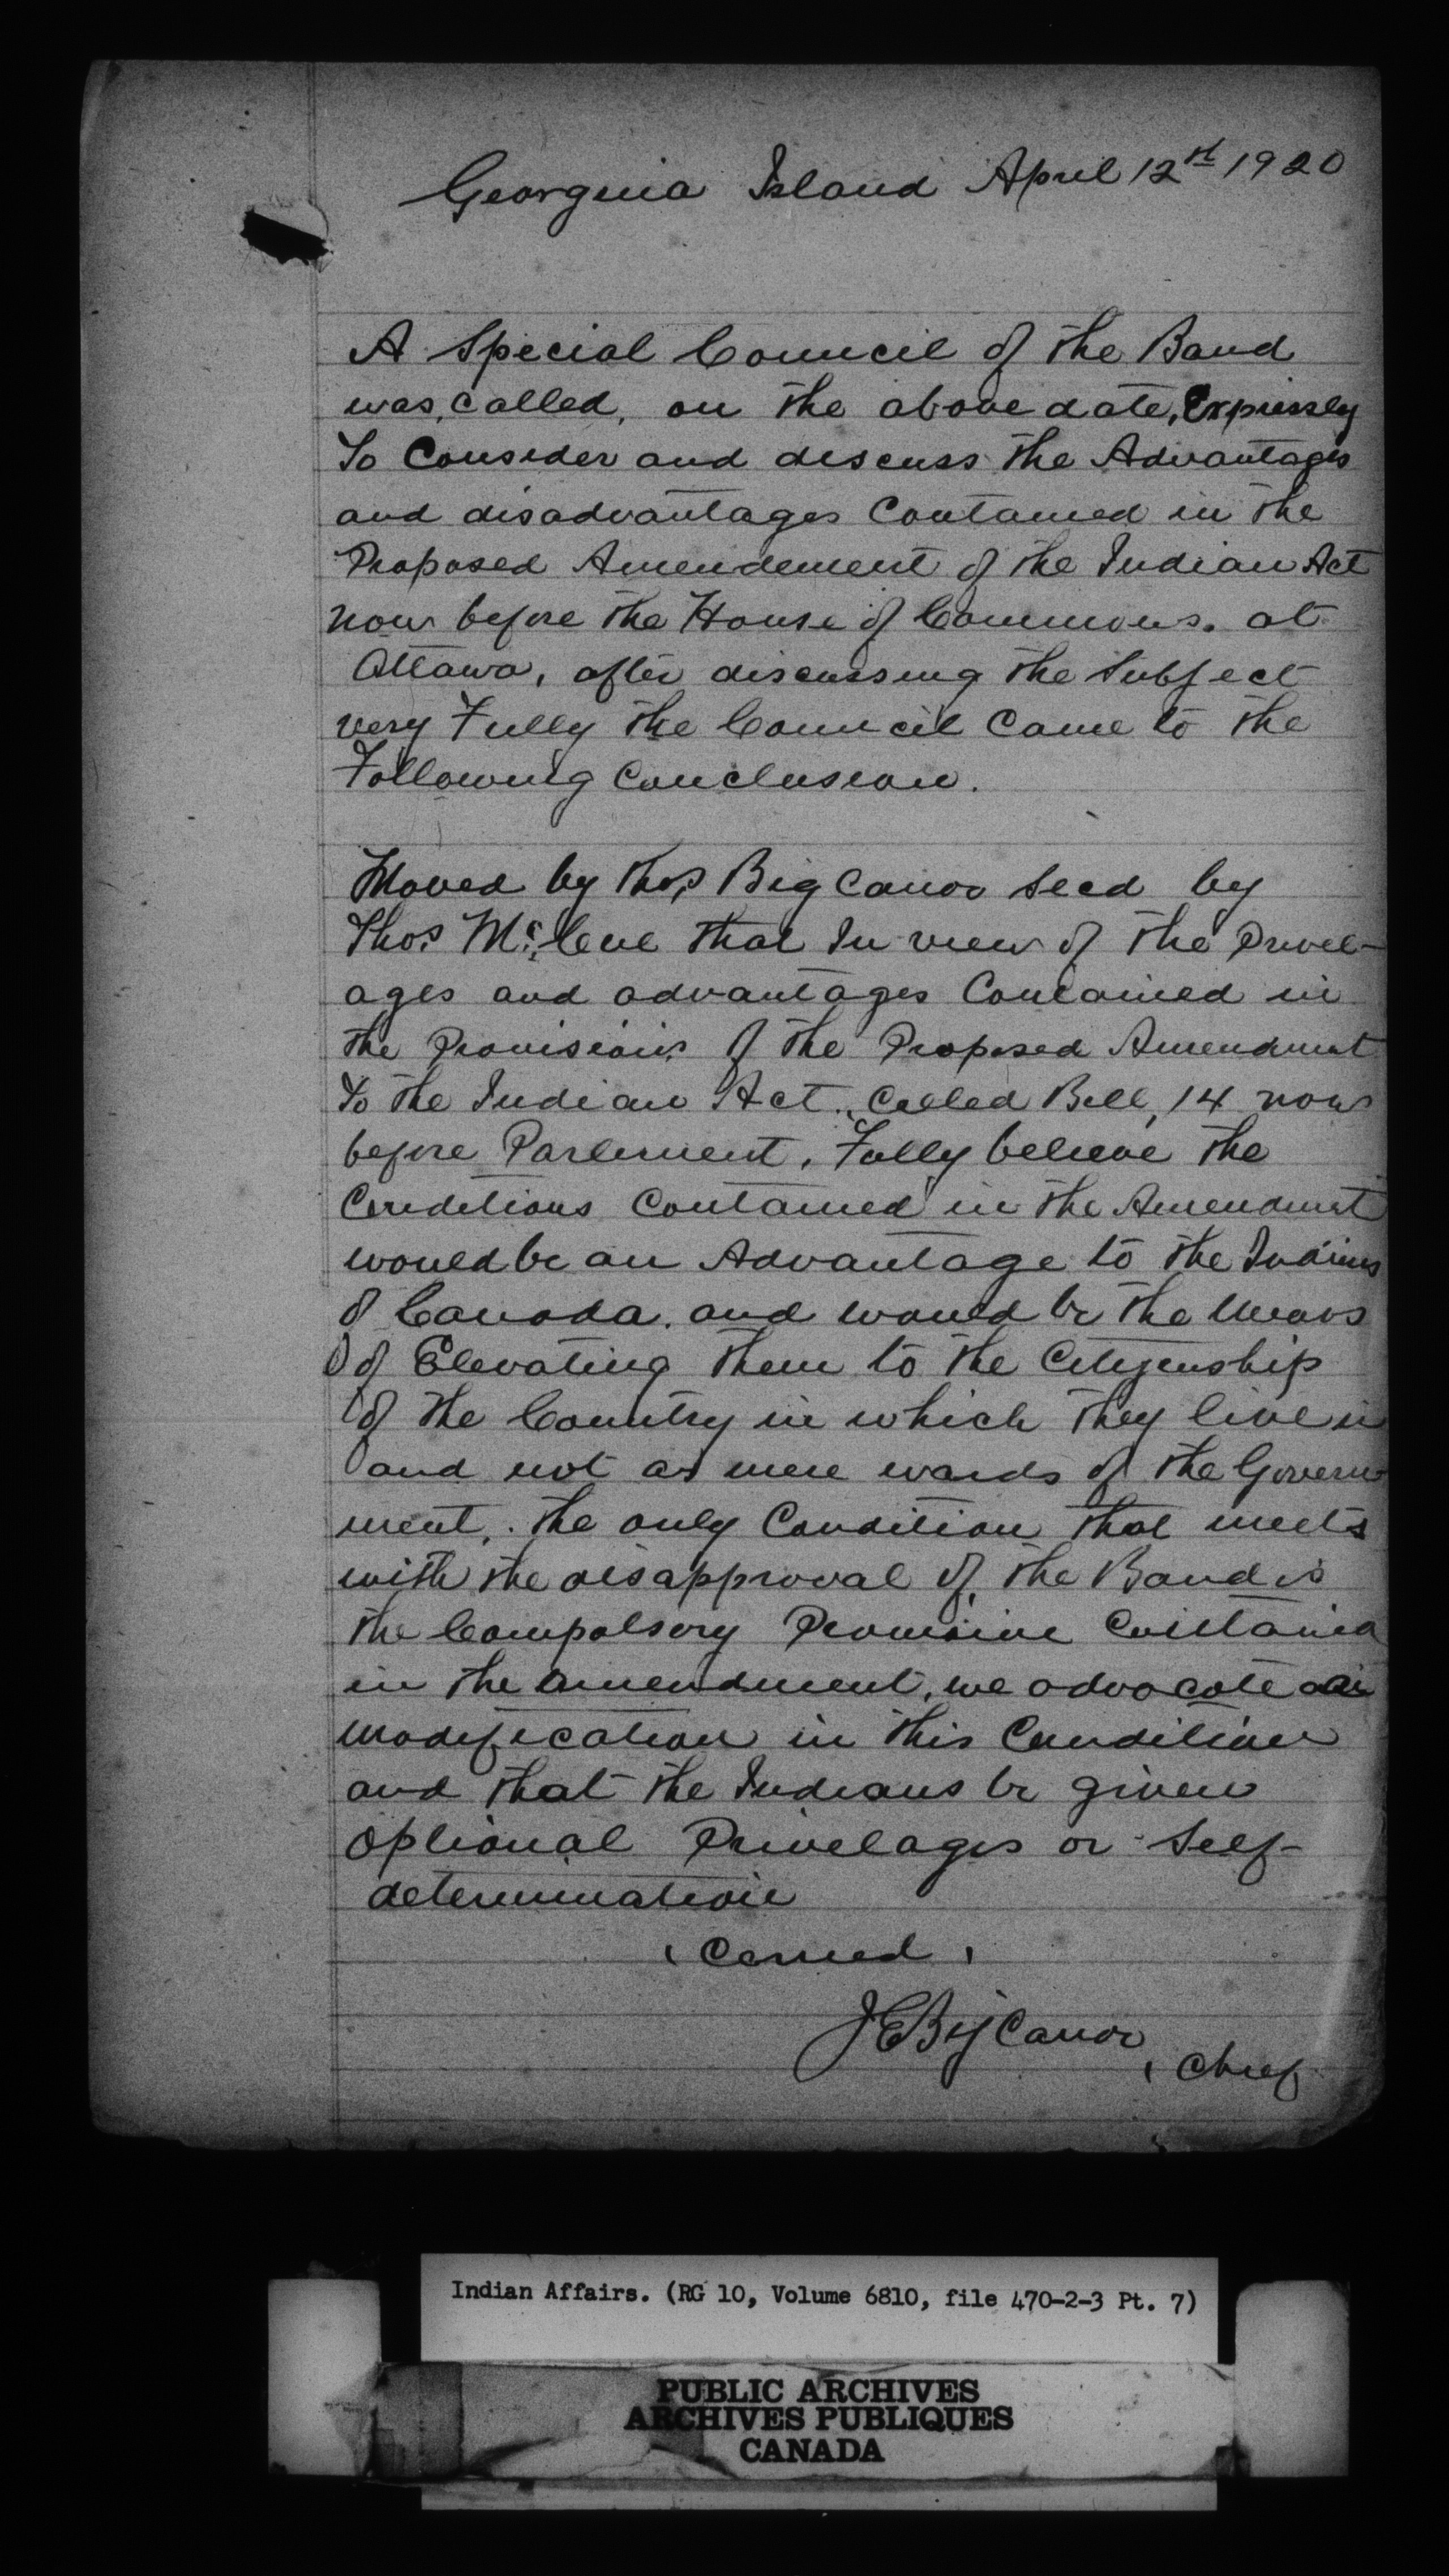 Georginia Island April 12st 1920
A Special Council of the Band
was, called, on the above date, Expressly
To Consider and discuss the Advantages
and disadvantages Contained in the
Proposed Amendement of the Indian Act
now before the House of Commons. at
Ottawa, after discussing the Subject
very Fully the Council Came to the
Following Conclusion.
Moved by Thos Big Canoe Secd by
Thos. Mc.Cue that In view of the Privel-
ages and advantages Contained in
the Provisions of the Proposed Amendment
To the Indian Act. Called Bill, 14 now
before Parliment, Fully believe the
Conditions Contained in the Amendment
would be an Advantage to the Indians
of Canada. and would be the Means
of Elevating them to the Citizenship
of the Country in which they live in
and not as mere wards of the Govern-
ment,. the only Condition that meets
with the disapproval of the Band is
the Compolsory Provision Contained
in the amendment, we advocate a
modification in this Condition
and that the Indians be given
optional Privelages or Self-
determination
Carried
J E Big Canoe
, Chief
Indian Affairs. (RG 10, Volume 6810, file 470-2-3 Pt. 7)
PUBLIC ARCHIVES
ARCHIVES PUBLIQUES
CANADA